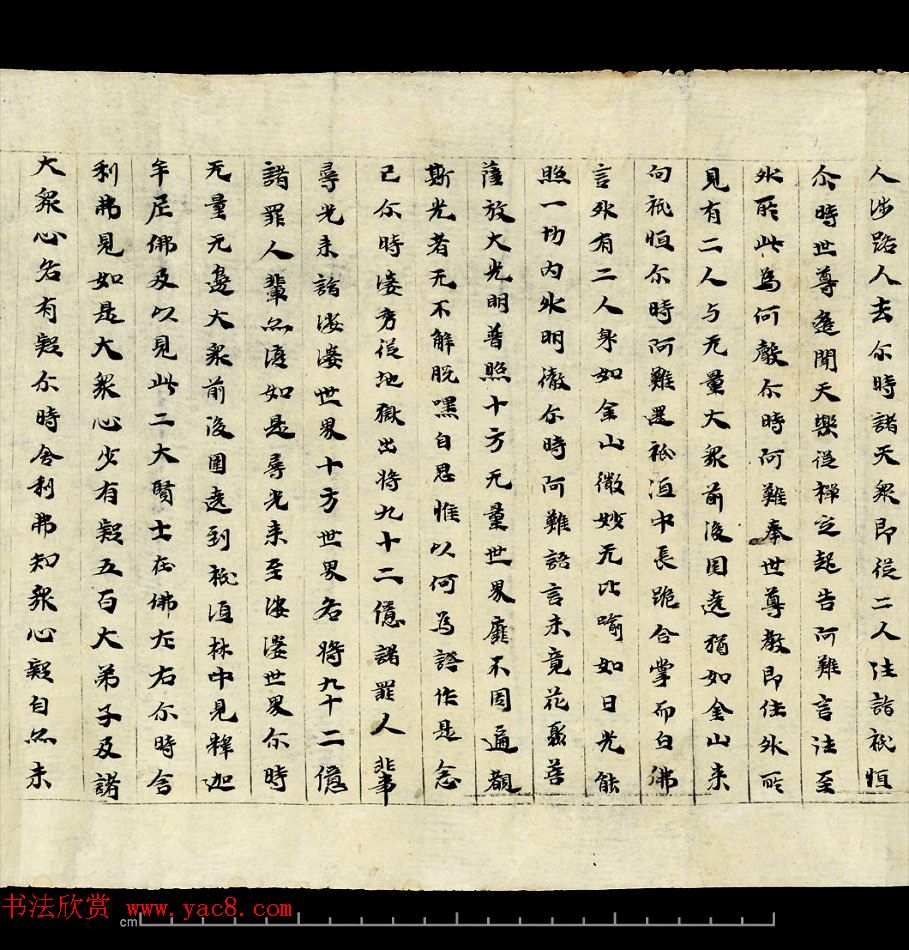 人涉路人去尒時諸天衆即從二人往詣祇恒
尒時世尊遥聞天樂從禅定起告阿難言汝至
外所此爲何聲尒時阿難奉世尊教即住外所
見有二人与无量大衆前後圍遶猶如金山来
向祇恒尒時阿難還祇洹中長跪合掌而白佛
言外有二人身如金山微妙无比喻如日光能
照一切内外明徹尒時阿難語言未竟花聚菩
薩放大光明普照十方无量世界靡不周遍覩
斯光者无不解脱嘿自思惟以何爲證作是念
已尒時婆旁從地獄出將九十二億諸罪人輩
尋光来詣娑婆世界十方世界各將九十二億
諸罪人輩亦復如是尋光来至娑婆世界尒時
无量无邊大衆前後圍遶到祇洹林中見釋迦
牟尼佛及以見此二大賢士在佛左右尒時舍
利弗見如是大衆心少有疑五百大弟子及諸
大衆心各有疑尒時舍利弗知衆心疑自亦未
书法欣赏 www.yac8.com
cm